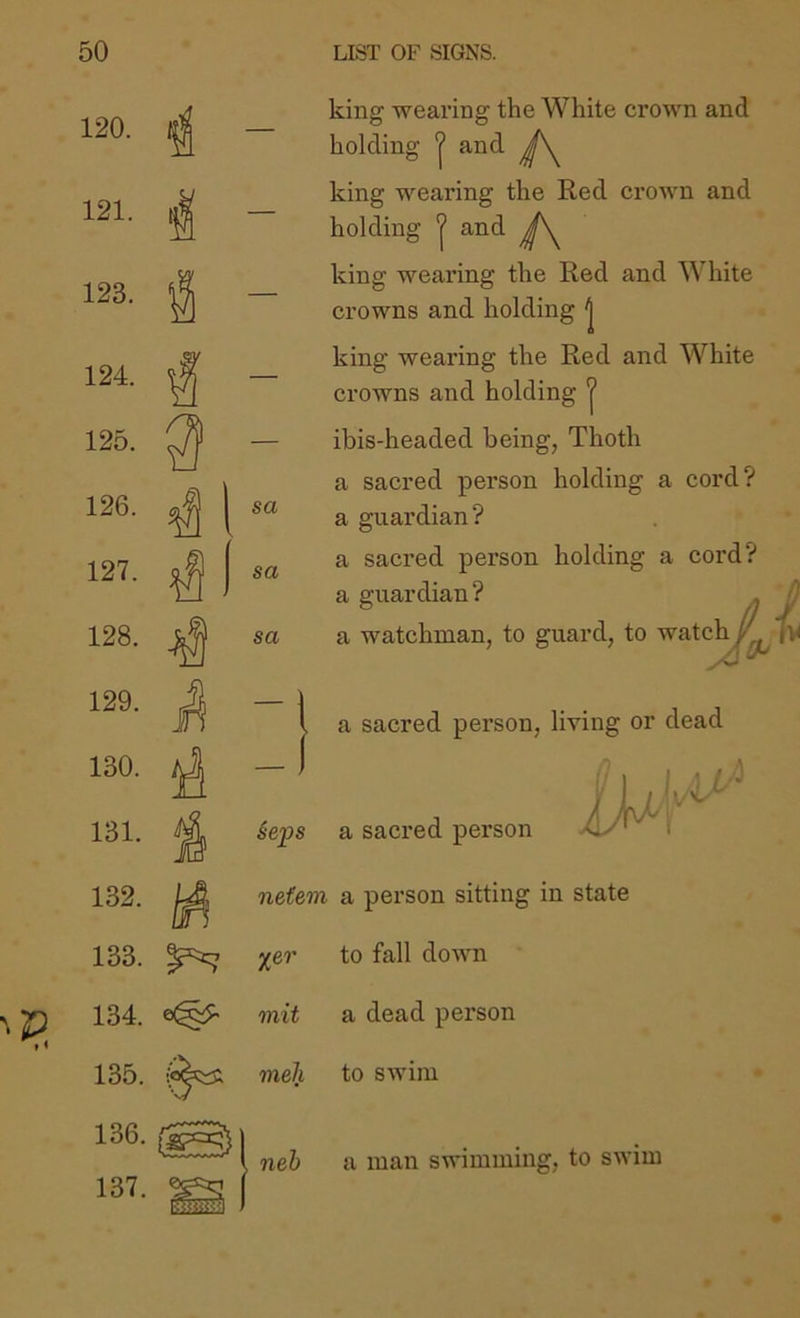 50 LIST OF SIGNS.
120. — king wearing the White crown and
holding and
121. — king wearing the Red crown and
holding and
123. — king wearing the Red and White
crowns and holding
124. — king wearing the Red and White
crowns and holding
125. — ibis-headed being, Thoth
126. sa a sacred person holding a cord?
a guardian?
127. sa a sacred person holding a cord?
a guardian?
128. sa a watchman, to guard, to watch
129. —
a sacred person, living or dead
130. —
131. śeps a sacred person
132. netem a person sitting in state
133. χer to fall down
134. mit a dead person
135. meḥ to swim
136.
neb a man swimming, to swim
137.